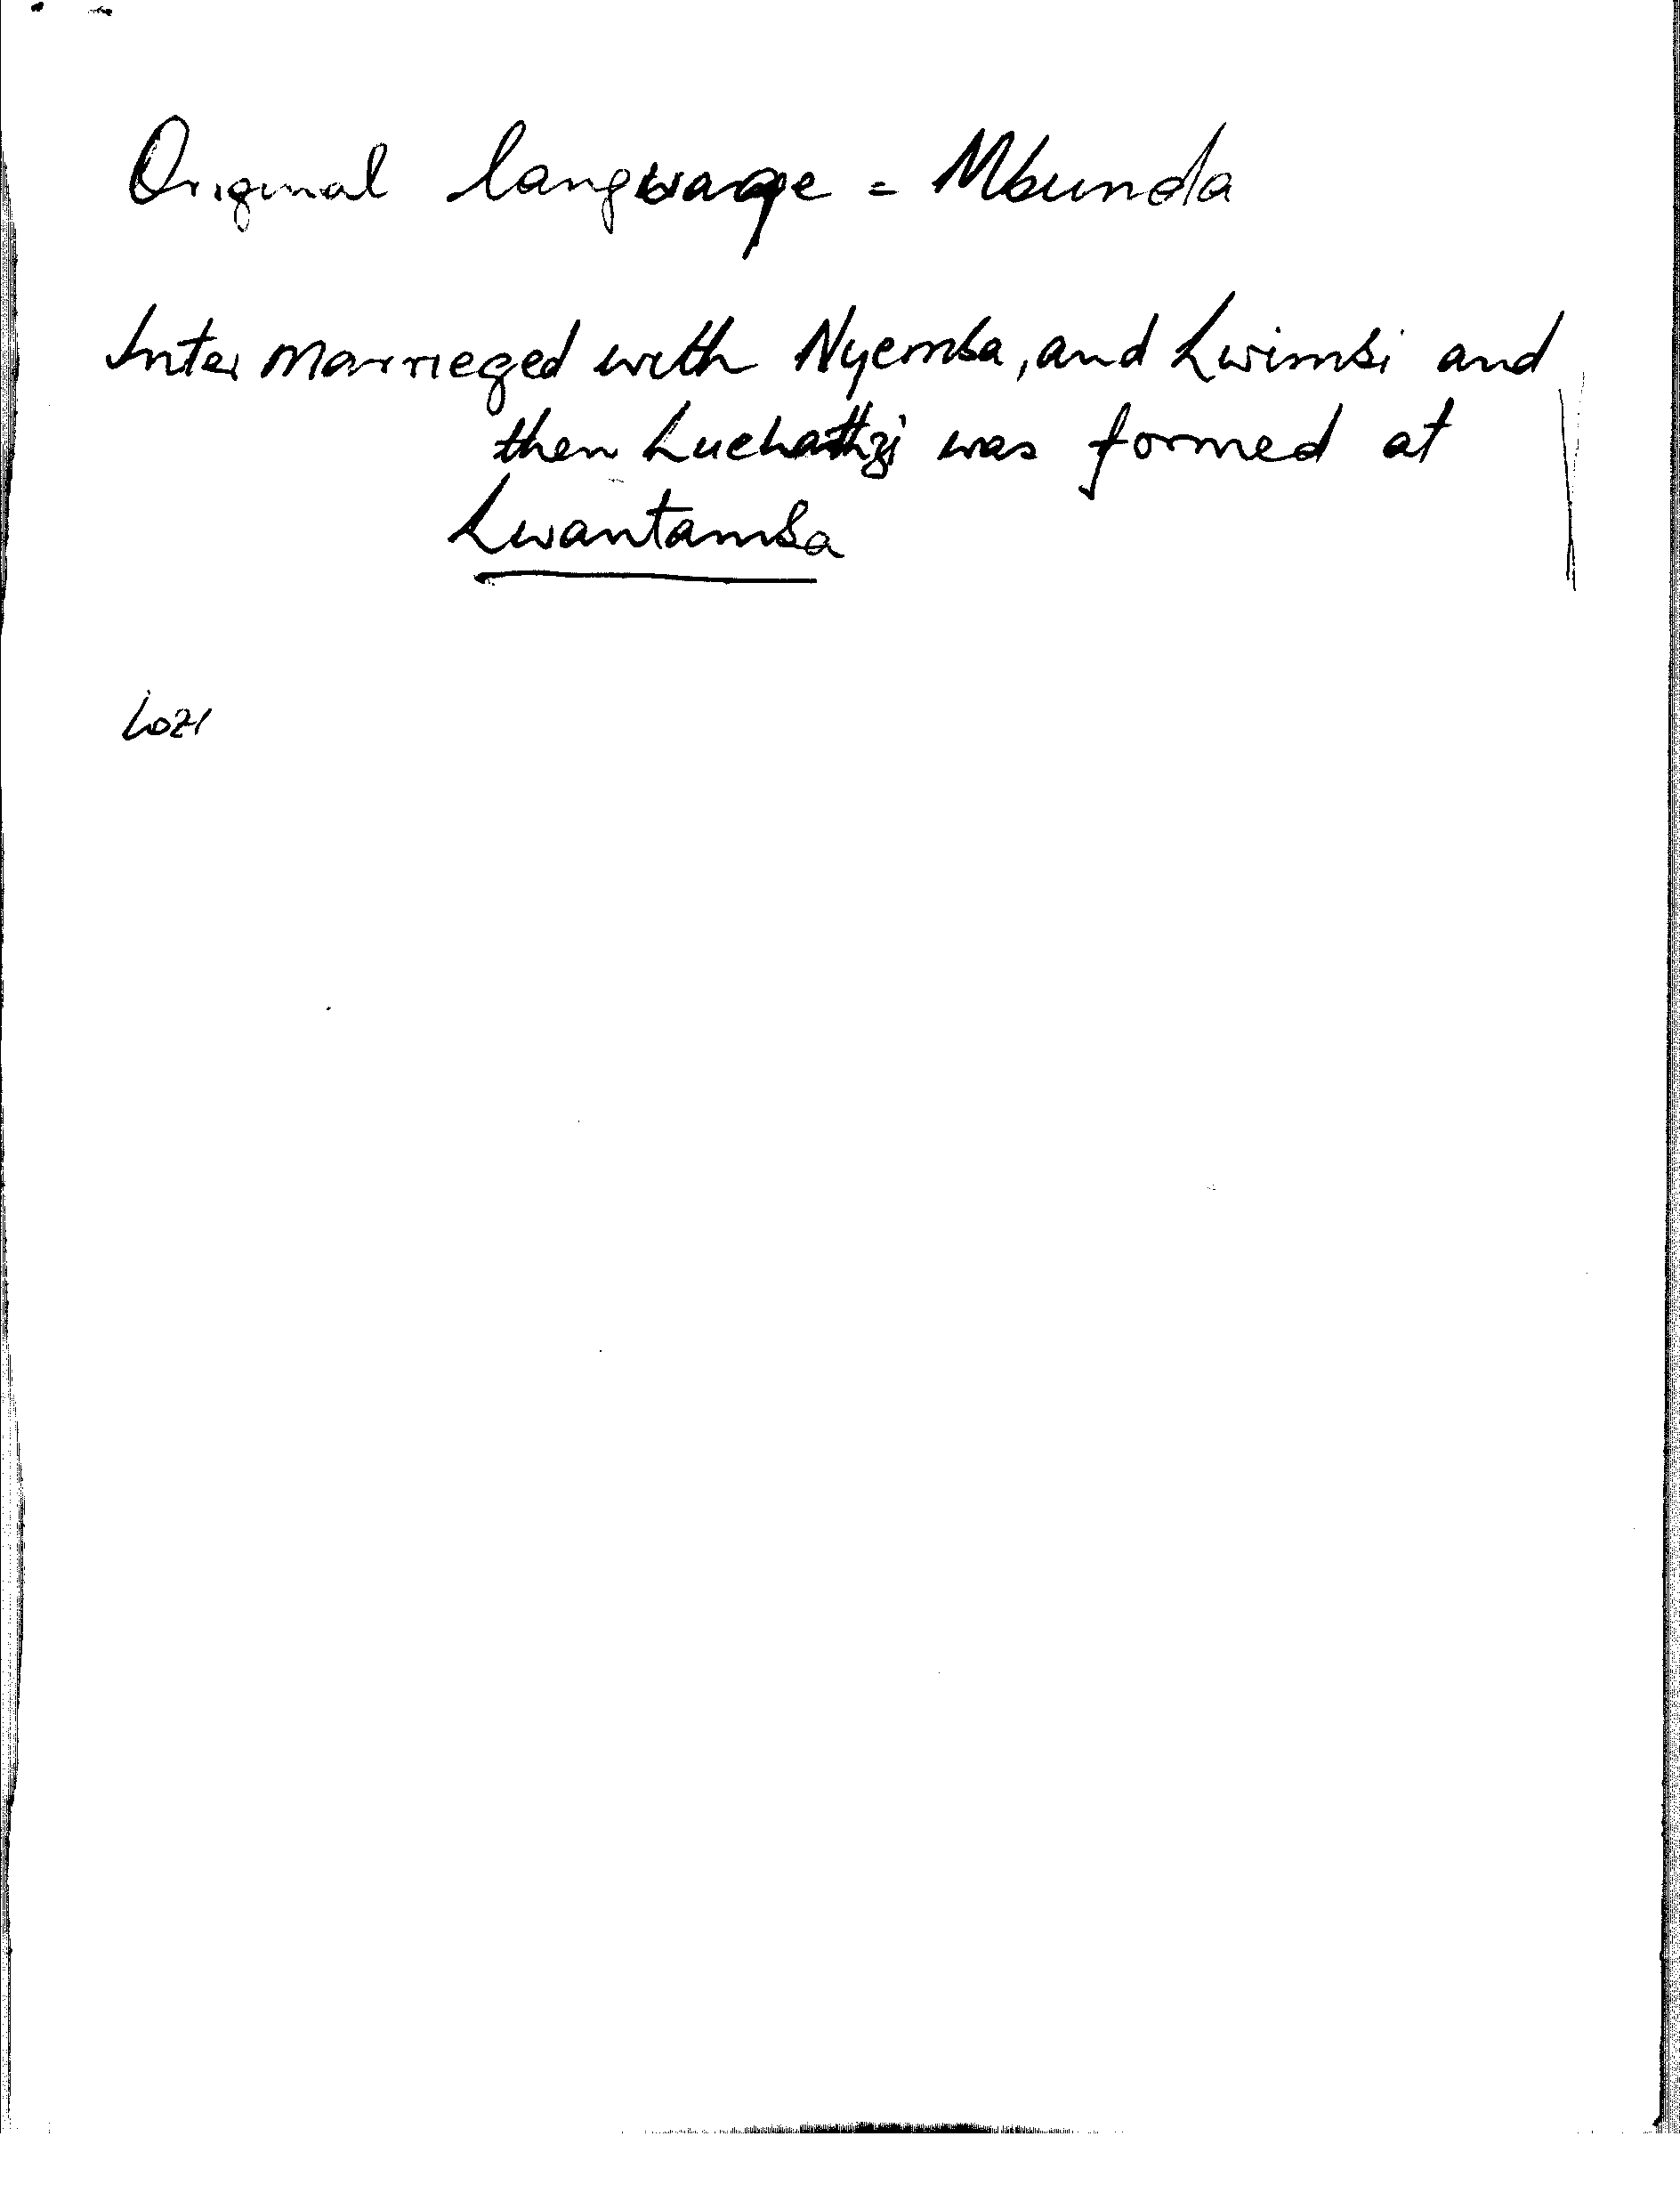 Original language = Mbunda
Inter marrieged with Nyemba, and Lwimbi and
then Luchathzi was formed at
Lwantamba
Lozi